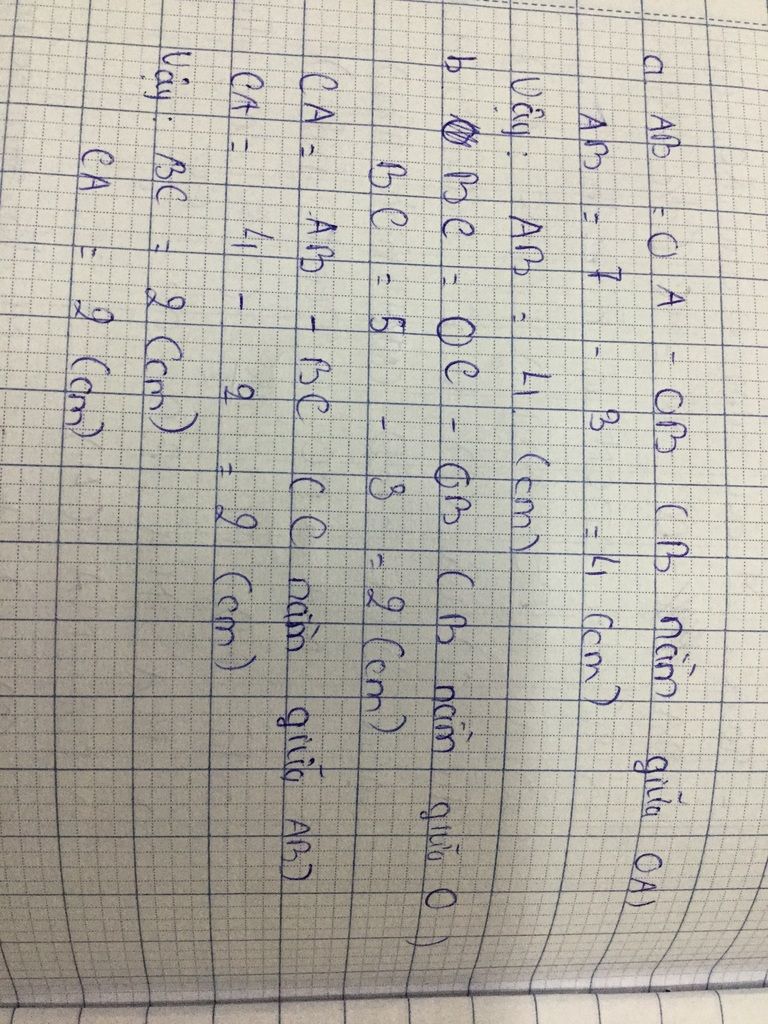 a AB = OA - OB (B nằm giữa OA)
AB = 7 - 3 = 4 (cm)
Vậy: AB = 4 (cm)
b BC = OC - OB (B nằm giữa O )
BC = 5 - 3 = 2 (cm)
CA = AB - BC (C nằm giữa AB)
CA = 4 - 2 = 2 (cm)
Vậy: BC = 2 (cm)
CA = 2 (cm)